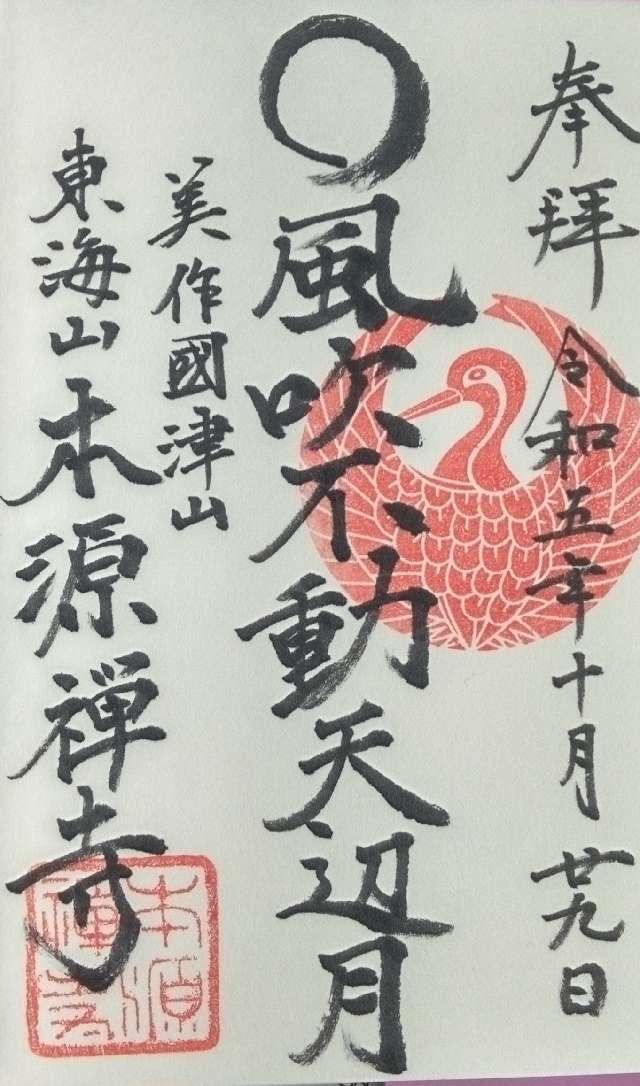 奉拝
令和五年十月廿九日
風吹不動天辺月
美作國津山
東海山本源禅寺
本源
禅寺